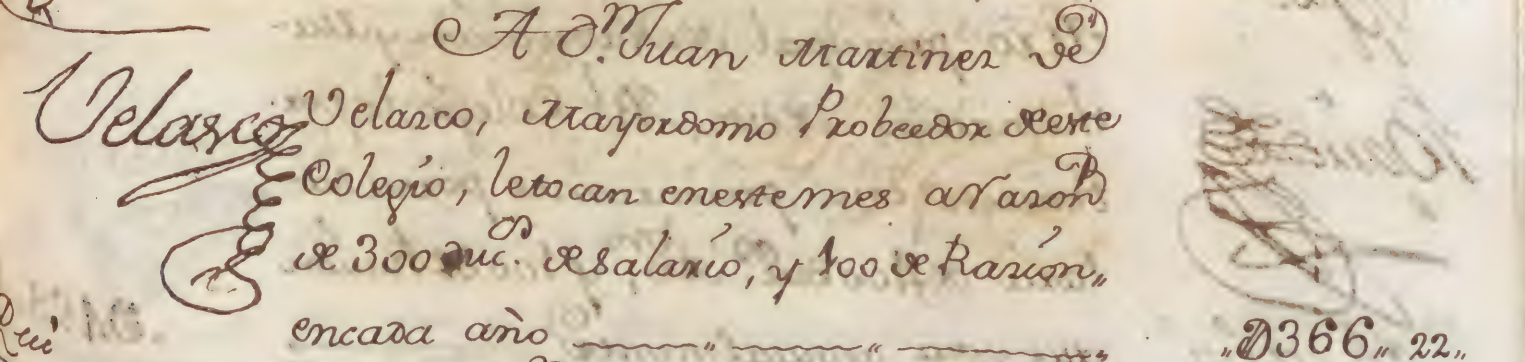 A D.ⁿ Juan Martinez de
Velasco, Mayordomo Probeedor deeste
Colegio, letocan enestemes a razon
de 300 duc.ˢ desalario, y 100 de Racion„
encada año „D366„ 22„
Velasco